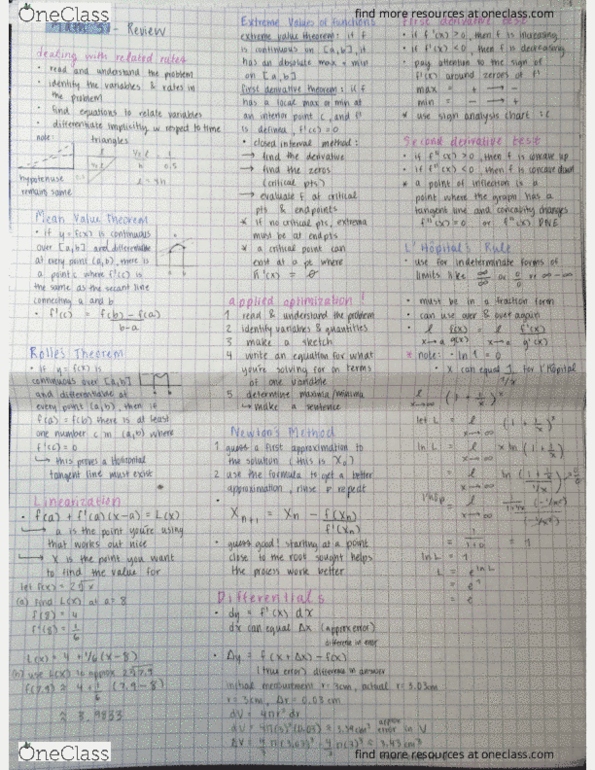 OneClass
find more resources at oneclass.com
- Review
dealing with related rates
• read and understand the problem
• identify the variables & rates in
the problem
• find equations to relate variables
• differentiate implicitly w respect to time
note:
triangles
hypotenuse
remain same
Mean Value Theorem
• if y = f(x) is continuous
over [a,b] and differentiable
at every point (a,b), there is
a point c where f'(c) is
the same as the secant line
connecting a and b
• f'(c) = f(b) - f(a)
b-a
Rolle's Theorem
• If y = f(x) is
continuous over [a,b]
and differentiable at
every point (a,b), then if
f(a) = f(b) there is at least
one number c in (a,b) where
f'(c) = 0
↳ this proves a Horizontal
tangent line must exist
Linearization
• f(a) + f'(a)(x-a) = L(x)
↳ a is the point you're using
that works out nice
↳ x is the point you want
to find the value for
let f(x) = 2∛x
(a) Find L(x) at a = 8
f(8) = 4
f'(8) = 1/6
L(x) = 4 + 1/6 (x-8)
(b) use L(x) to approx 2∛7.9
f(7.9) ≈ 4 + 1/6 (7.9 - 8)
≈ 3.9833
Extreme Values of Functions
extreme value theorem: if f
is continuous on [a,b], it
has an absolute max + min
on [a,b]
first derivative theorem: if f
has a local max or min at
an interior point c, and f'
is defined, f'(c) = 0
• closed interval method:
→ find the derivative
→ find the zeros
(critical pts)
→ evaluate f at critical
pts & endpoints
* if no critical pts, extrema
must be at endpts
* a critical point can
exist at a pt where
applied optimization!
1 read & understand the problem
2 identify variables & quantities
3 make a sketch
4 write an equation for what
you're solving for in terms
of one variable
5 determine maxima/minima
↳ make a sentence
Newton's Method
1 guess a first approximation to
the solution (this is X₀)
2 use the formula to get a better
approximation, rinse & repeat
• Xn+1 = Xn - f(Xn)
f'(Xn)
• guess good! starting at a point
close to the root sought helps
the process work better
Differentials
• dy = f'(x) dx
dx can equal Δx (approx error)
difference in error
• Δy = f(x + Δx) - f(x)
(true error) difference in answer
initial measurement r = 3cm, actual r = 3.03cm
r = 3cm, Δr = 0.03 cm
dV = 4πr² dr
dV = 4π(3)²(0.03) = 3.39 cm³ approx
error in V
ΔV = 4/3 π(3.03)³ - 4/3 π(3)³ = 3.43 cm³
First derivative test
• if f'(x) > 0, then f is increasing
• if f'(x) < 0, then f is decreasing
• pay attention to the sign of
f'(x) around zeros of f'
max = + → -
min = - → +
* use sign analysis chart
Second derivative test
• if f''(x) > 0, then f is concave up
• if f''(x) < 0, then f is concave down
* a point of inflection is a
point where the graph has a
tangent line and concavity changes
f''(x) = 0 or f''(x) DNE
L'Hôpital's Rule
• use for indeterminate forms of
limits like ∞/∞ or 0/0 or ∞-∞
• must be in a fraction form
• can use over & over again
• l f(x) = l f'(x)
x→a g(x) x→a g'(x)
* note: • ln 1 = 0
• x can equal 1/1/x for l'hôpital
l (1 + 1/x)ˣ
x→∞
let L = l (1 + 1/x)ˣ
x→∞
ln L = l x ln (1 + 1/x)
x→∞
= l ln (1 + 1/x) 0/0
x→∞ 1/x
l'hop = l 1/1+1/x (-1/x²)
x→∞ (-1/x²)
= 1/1+0 = 1
ln L = 1
L = e^ln L
= e¹
= e
OneClass
find more resources at oneclass.com